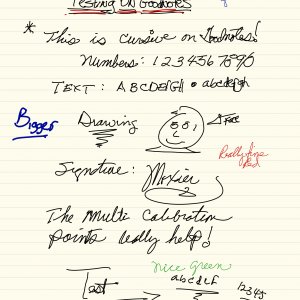 Testing on Goodnotes
* This is cursive on Goodnotes!
Numbers: 1234567890
TEXT: ABCDEFGH • abcdefgh
Bigger
Drawing
Face
Really fine
Red
Signature: Moxier
The multi calibration
points really help!
nice green
Text
abcdef
12345